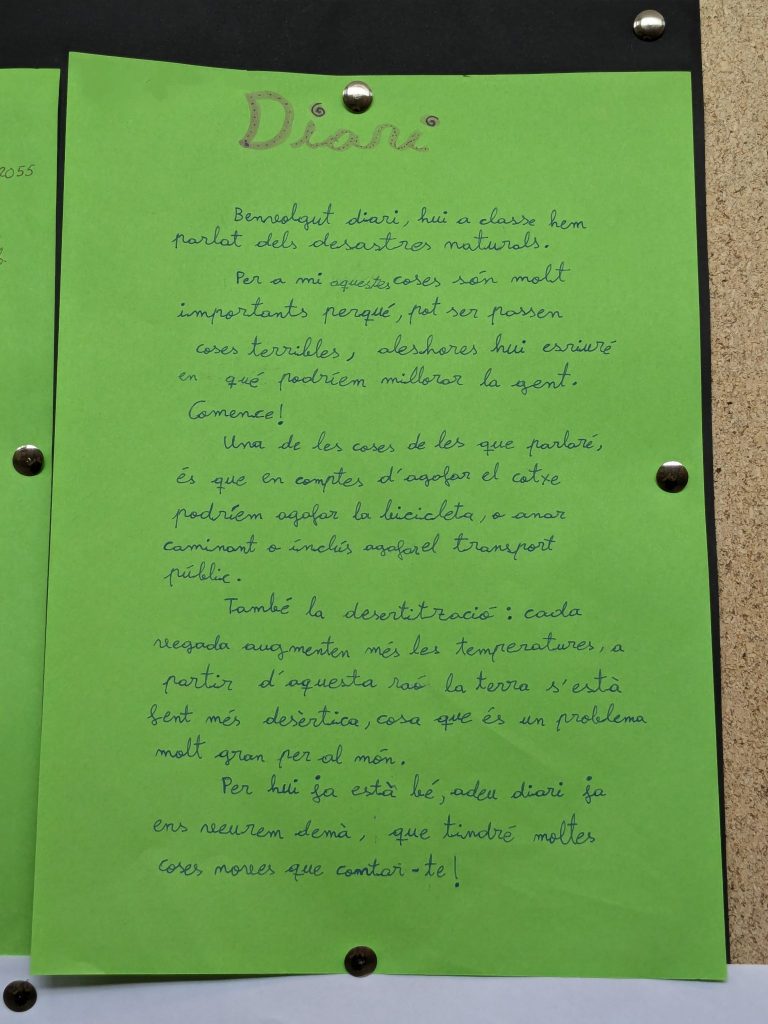 2055
Diari
Benvolgut diari, hui a classe hem
parlat dels desastres naturals.
Per a mi aquestes coses són molt
importants perqué, pot ser passen
coses terribles, aleshores hui esriuré
en qué podríem millorar la gent.
Comence!
Una de les coses de les que parlaré,
és que en comptes d'agafar el cotxe
podríem agafar la bicicleta, o anar
caminant o inclús agafar el transport
públic.
També la desertització: cada
vegada augmenten més les temperatures, a
partir d'aquesta raó la terra s'està
fent més desèrtica, cosa que és un problema
molt gran per al món.
Per hui ja està bé, adeu diari ja
ens veurem demà, que tindré moltes
coses noves que comtar-te!